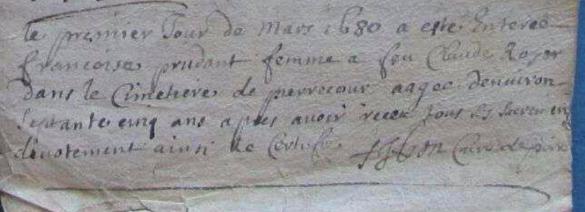 le premier Jour de Mars 1680 a esté Enteree
francoise prudant femme a feu Claude Royer
dans le Cimetiere de perrecour aagee denuiron
septante cinq ans apres avoir receu tous les sacremens
devotement ainsi le Certifie